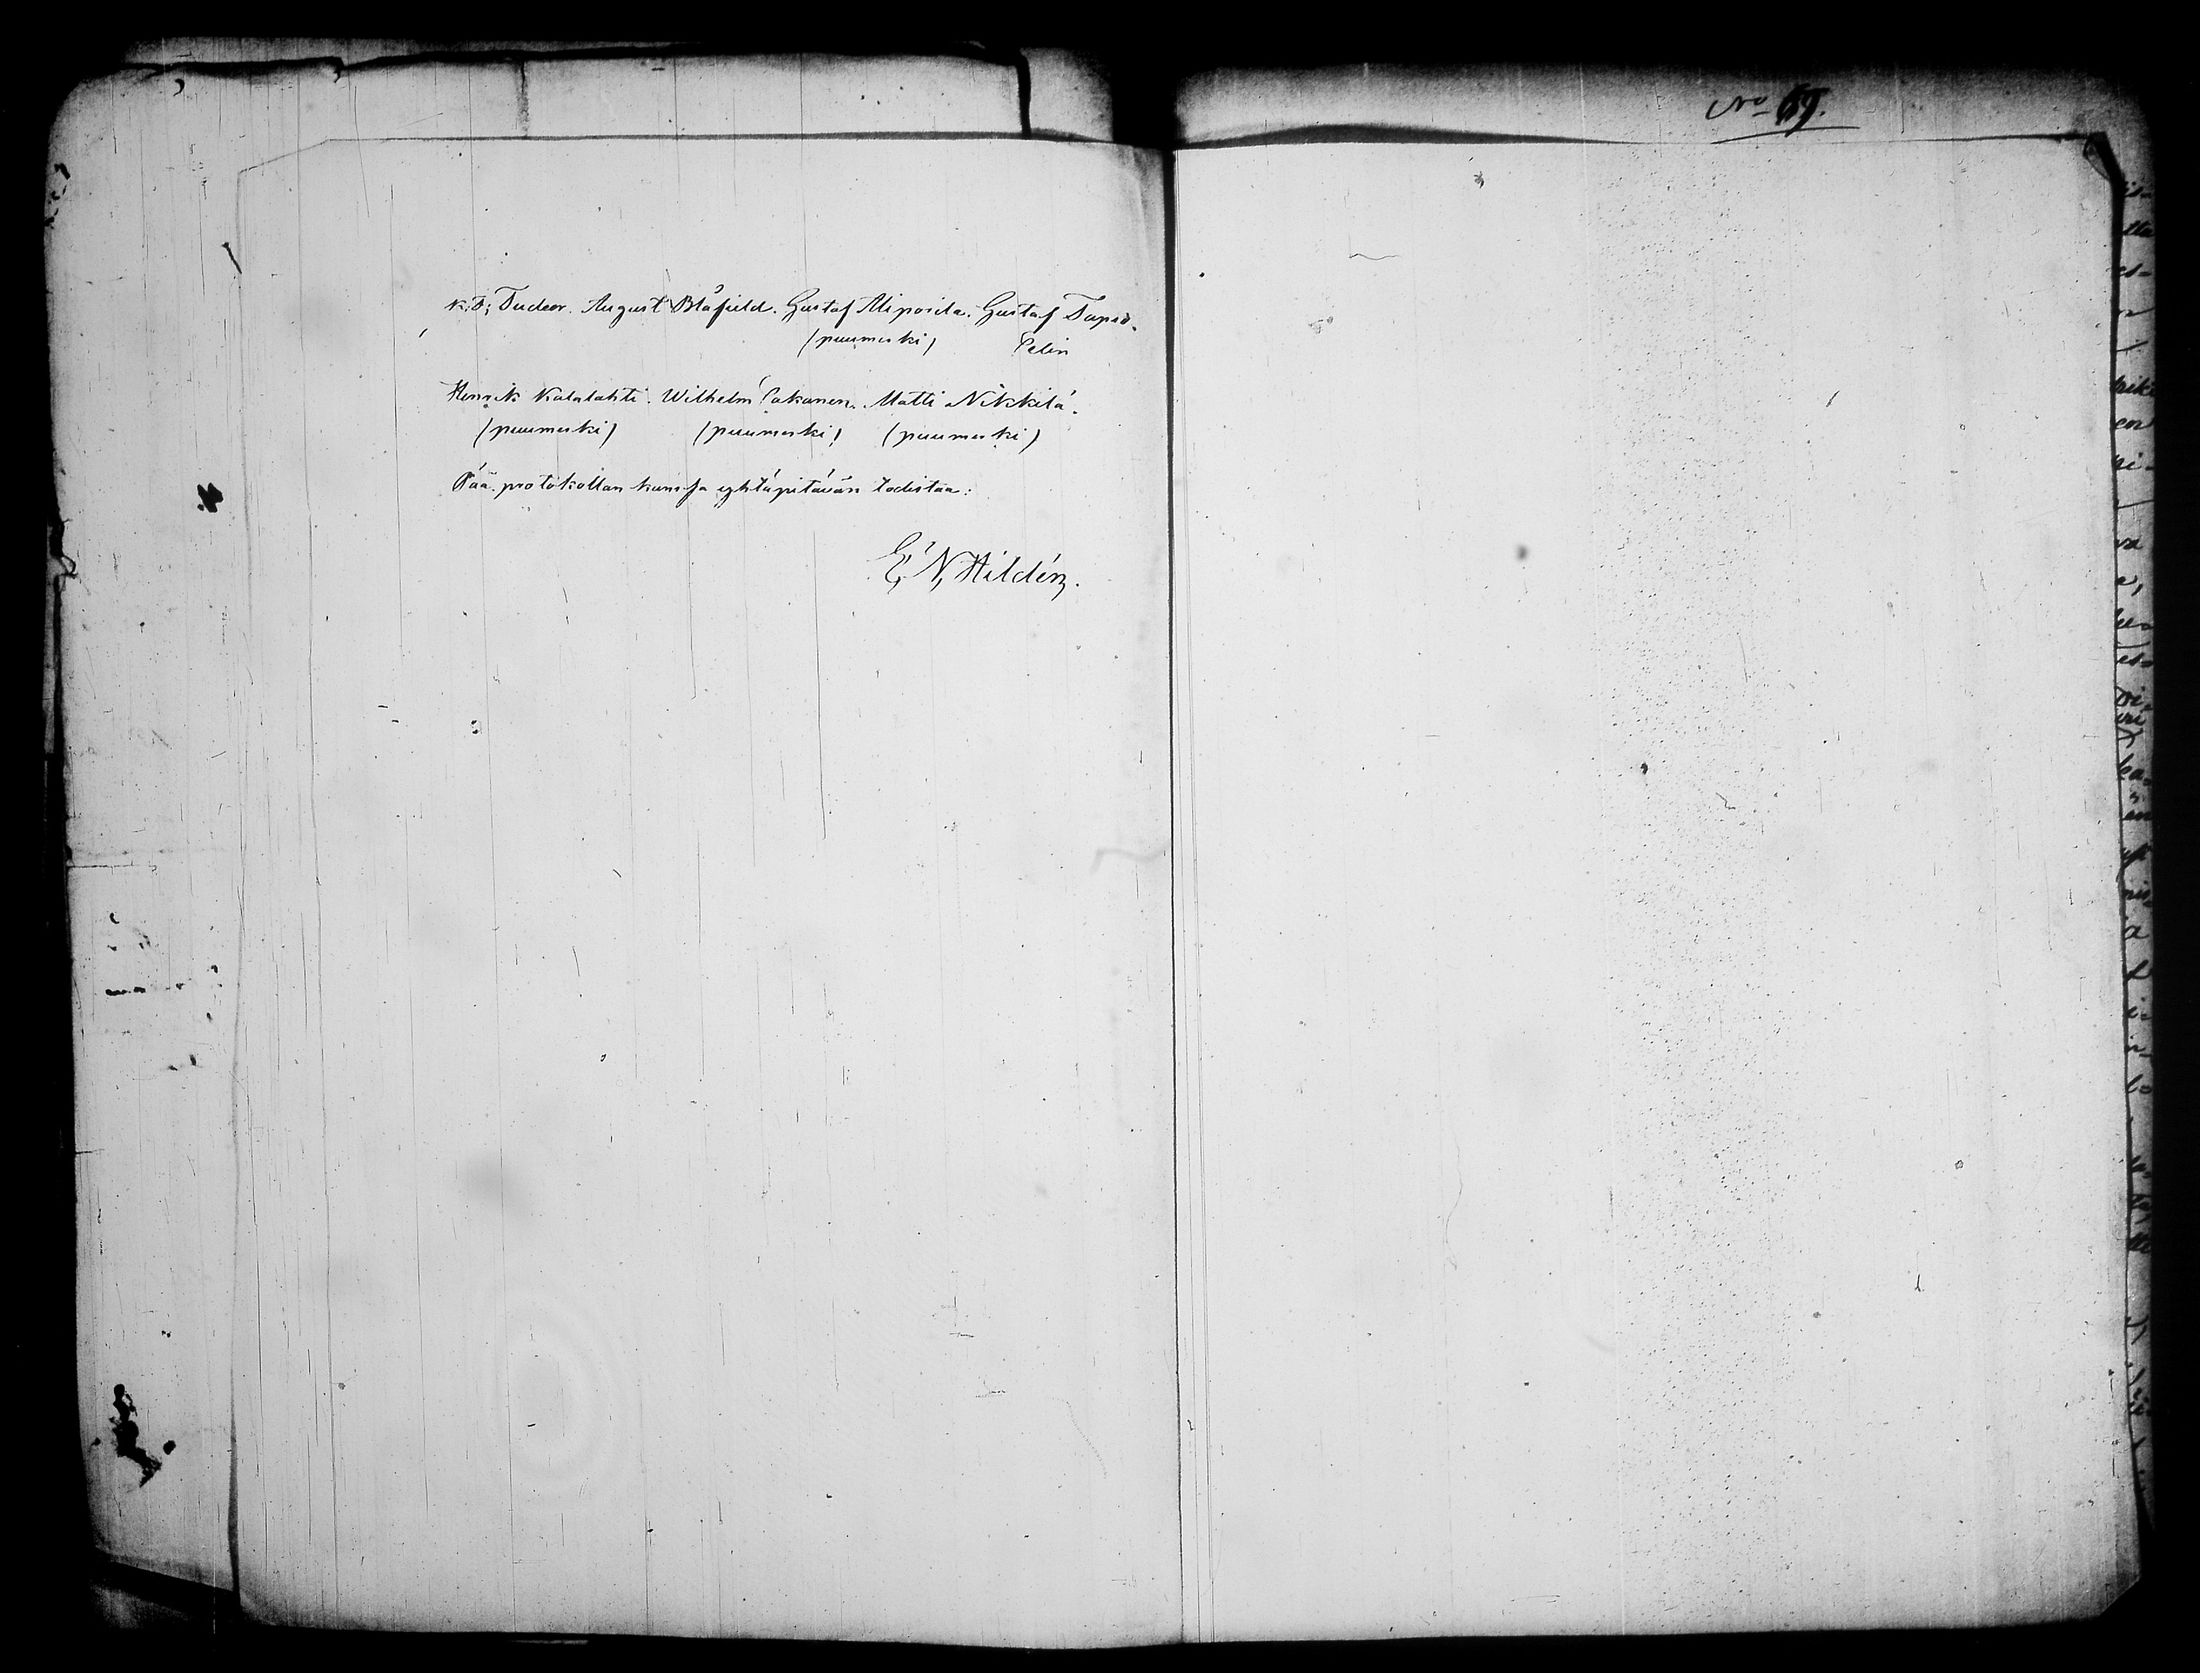 K. D. Tudeer. August Blåfield. Gustaf Aliporila. Gustaf Tapio-
(puumerki) Pelin
Henrik Kalalahti. Wilhelm Pakanen. Matti Nikkilä.
(puumerki) (puumerki) (puumerki)
Pää protokollan kanssa yhtäpitävän todistaa:
E. N. Hildén.
No